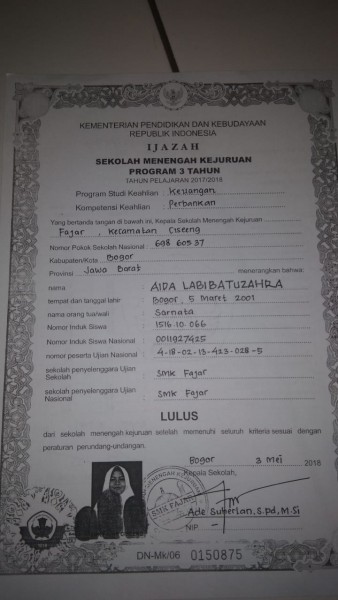 KEMENTERIAN PENDIDIKAN DAN KEBUDAYAAN
REPUBLIK INDONESIA
IJAZAH
SEKOLAH MENENGAH KEJURUAN
PROGRAM 3 TAHUN
TAHUN PELAJARAN 2017/2018
Program Studi Keahlian : Keuangan
Kompetensi Keahlian : Perbankan
Yang bertanda tangan di bawah ini, Kepala Sekolah Menengah Kejuruan
Fajar , Kecamatan Ciseeng
Nomor Pokok Sekolah Nasional : 698 605 37
Kabupaten/Kota : Bogor
Provinsi Jawa Barat menerangkan bahwa:
nama AIDA LABIBATUZAHRA
tempat dan tanggal lahir Bogor, 5 Maret 2001
nama orang tua/wali Sarnata
Nomor Induk Siswa 1516.10.066
Nomor Induk Siswa Nasional 0011927425
nomor peserta Ujian Nasional 4-18-02-13-423-028-5
sekolah penyelenggara Ujian Sekolah SMK Fajar
sekolah penyelenggara Ujian Nasional SMK Fajar
LULUS
dari sekolah menengah kejuruan setelah memenuhi seluruh kriteria sesuai dengan
peraturan perundang-undangan.
Bogor 3 Mei 2018
Kepala Sekolah,
SMK FAJAR
Ade Suherlan, S.pd, M.Si
NIP -
DN-Mk/06 0150875